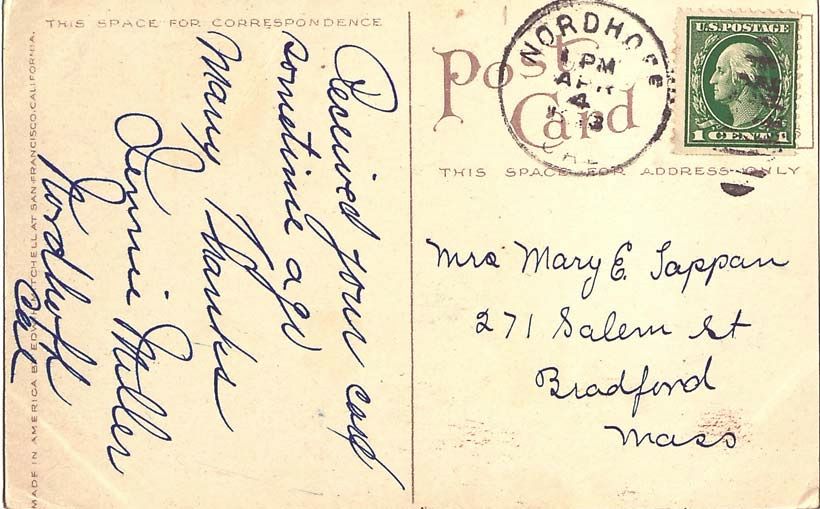 THIS SPACE FOR CORRESPONDENCE
Received your card
sometime ago
Many Thanks
Miller
Nordhoff
Cal
MADE IN AMERICA BY EDW. H. MITCHELL AT SAN FRANCISCO, CALIFORNIA.
Post
Card
NORDHOFF
1 PM
APR
4
CAL
U.S. POSTAGE
1 CENT 1
THIS SPACE FOR ADDRESS ONLY
Mrs Mary E. Tappan
271 Salem St
Bradford
Mass